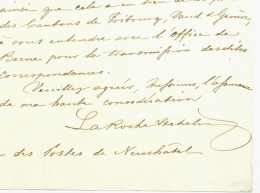 ainsi que cela a eu lieu de
des Cantons de Fribourg, Vaud & Genève,
à vous entendre avec l'Office de
Berne pour la transmission desdites
correspondances.
Veuillez agréer, Messieurs, l'assurance
de ma haute considération
LaRoche Stehelin
des Postes de Neuchâtel